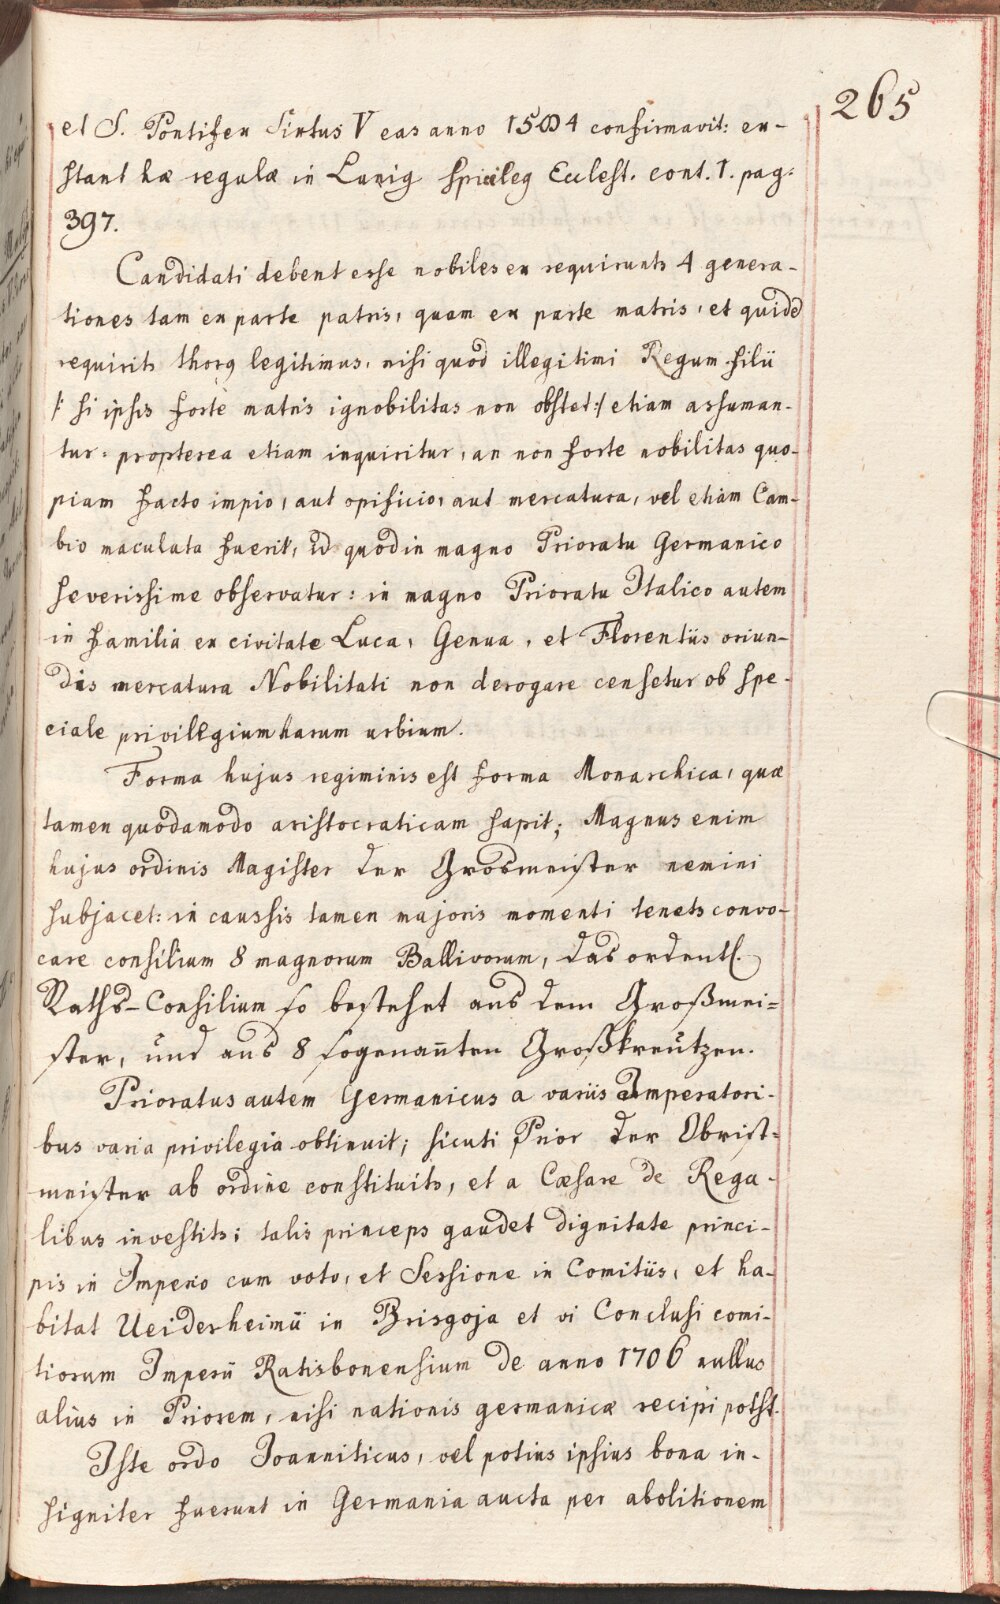 265
et S. Pontifex Sixtus V eas anno 1584 confirmavit: ex-
stant hæ regulæ in Lunig Spicileg Ecclest. cont. 1. pag:
397.
Candidati debent esse nobiles ex requirunts 4 genera-
tiones tam ex parte patris, quam ex parte matris, et quidē
requirits thorq legitimus, nisi quod illegitimi Regum filii
/: si ipsis forte matris ignobilitas non obstet :/ etiam assuman-
tur: propterea etiam inquiritur, an non forte nobilitas quo-
piam facto impio, aut opificio, aut mercatura, vel etiam Cam-
bio maculata fuerit, id quod in magno Prioratu Germanico
severissime observatur: in magno Prioratu Italico autem
in familia ex civitate Luca, Genua, et Florentiis oriun-
dis mercatura Nobilitati non derogare censetur ob spe-
ciale privilegium harum urbium.
Forma hujus regiminis est forma Monarchica, quæ
tamen quodamodo aristocraticam sapit; Magnus enim
hujus ordinis Magister der Grosmeister nemini
subjacet: in caussis tamen majoris momenti tenets convo-
care consilium 8 magnorum Ballivorum, das ordentl.
Raths-Consilium so bestehet aus dem Großmei=
ster, und aus 8 sogenañten Großkreutzen.
Prioratus autem Germanicus a variis Imperatori-
bus varia privilegia obtinuit; sicuti Prior der Obrist=
meister ab ordine constituits, et a Cæsare de Rega-
libus investits; talis princeps gaudet dignitate princi-
pis in Imperio cum voto, et Sessione in Comitiis, et ha-
bitat Ueidersheimii in Brisgoja et vi Conclusi comi-
tiorum Imperii Ratisbonensium de anno 1706 nullus
alius in Priorem, nisi nationis germanicæ recipi potst.
Iste ordo Joanniticus, vel potius ipsius bona in-
signiter fuerunt in Germania aucta per abolitionem